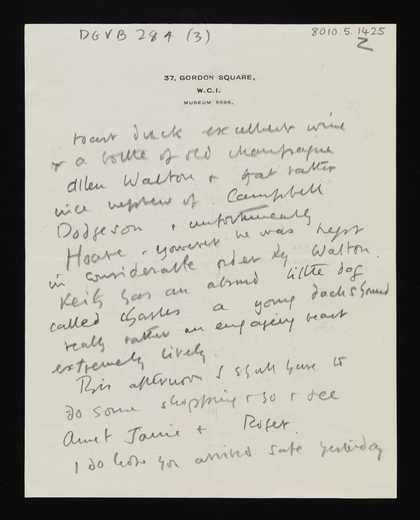 DGVB 284 (3)
8010.5.1425
2
37, GORDON SQUARE,
W.C.1.
MUSEUM
roast duck excellent wine
& a bottle of old champagne
Allen Walton & that rather
nice nephew of Campbell
Dodgson & unfortunately
Hoare. however he was kept
in considerable order by Walton.
Keith has an absurd little dog
called Charles a young dachshund
really rather an engaging beast
extremely lively.
This afternoon I shall have to
do some shopping & go & see
Aunt Janie & Roger.
I do hope you arrived safe yesterday